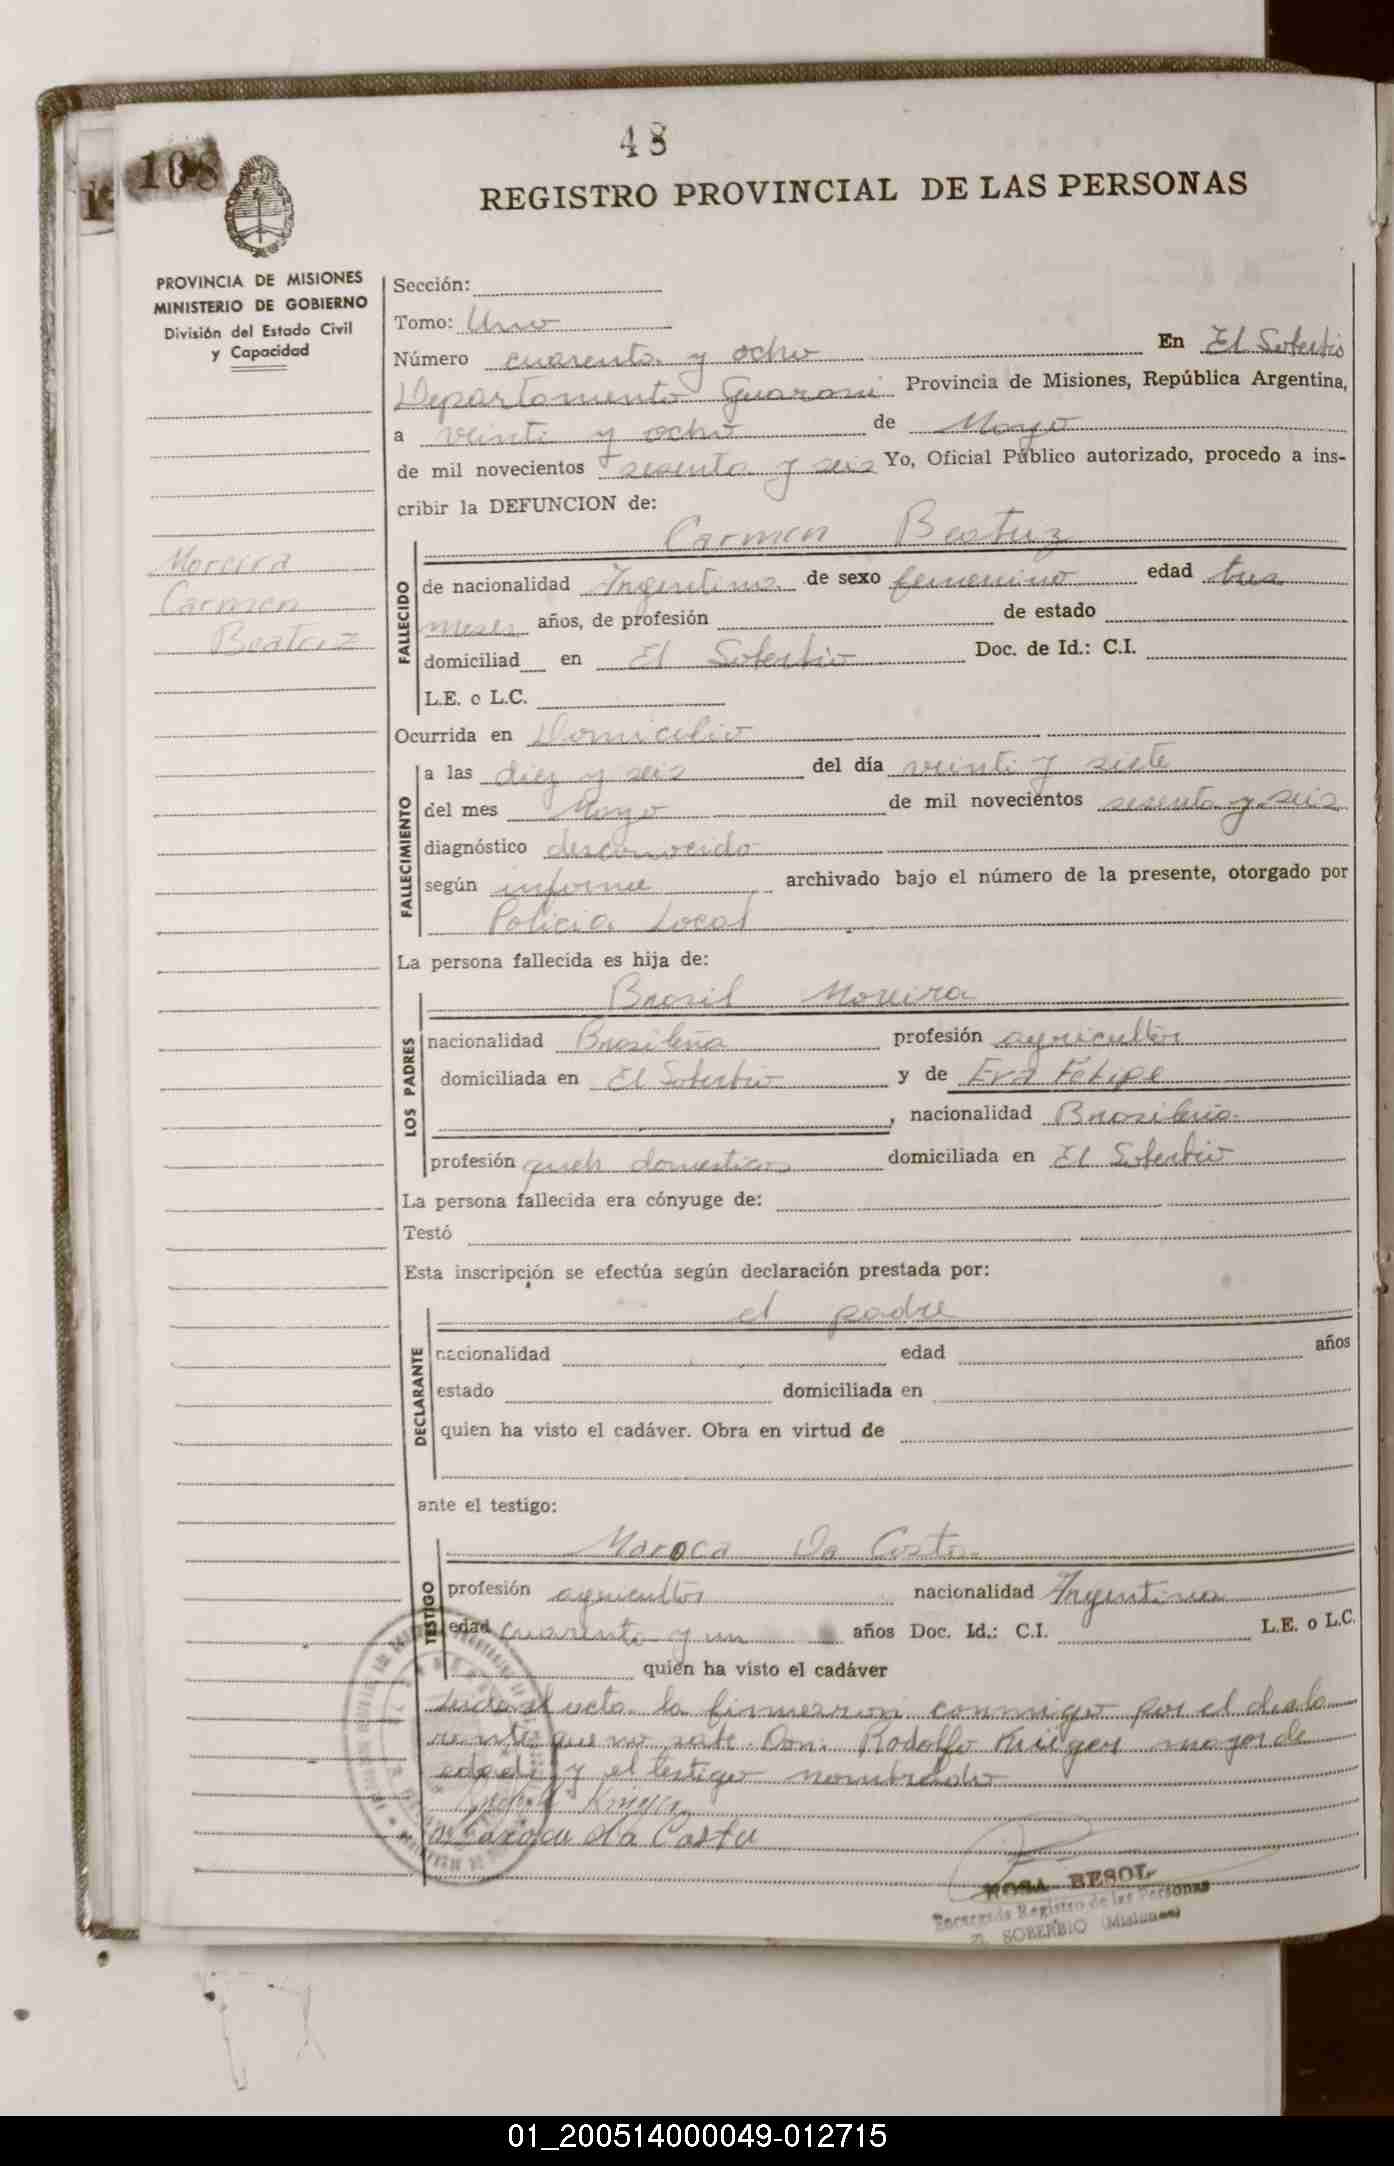 108
48
REGISTRO PROVINCIAL DE LAS PERSONAS
PROVINCIA DE MISIONES
MINISTERIO DE GOBIERNO
División del Estado Civil
y Capacidad
Moreira
Carmen
Beatriz
Sección:
Tomo: Uno
Número cuarenta y ocho En El Soberbio
Departamento Guarani Provincia de Misiones, República Argentina,
a veinti y ocho de Mayo
de mil novecientos sesenta y seis Yo, Oficial Público autorizado, procedo a ins-
cribir la DEFUNCION de:
Carmen Beatriz
FALLECIDO
de nacionalidad Argentina de sexo femenino edad tres
meses años, de profesión de estado
domiciliad en El Soberbio Doc. de Id.: C.I.
L.E. o L.C.
Ocurrida en Domicilio
FALLECIMIENTO
a las diez y seis del día veinti y siete
del mes Mayo de mil novecientos sesenta y seis
diagnóstico desconocido
según informe archivado bajo el número de la presente, otorgado por
Policia Local
La persona fallecida es hija de:
LOS PADRES
Brasil Moreira
nacionalidad Brasileña profesión agricultor
domiciliada en El Soberbio y de Eva Felipe
, nacionalidad Brasileña
profesión queh domesticos domiciliada en El Soberbio
La persona fallecida era cónyuge de:
Testó
Esta inscripción se efectúa según declaración prestada por:
DECLARANTE
el padre
nacionalidad edad años
estado domiciliada en
quien ha visto el cadáver. Obra en virtud de
ante el testigo:
TESTIGO
Maroca Da Costa
profesión agricultor nacionalidad Argentina
edad cuarenta y un años Doc. Id.: C.I. L.E. o L.C.
quien ha visto el cadáver
el acta la firmaron conmigo por el decla
rante que no sabe Don Rodolfo Krieger mayor de
edad y el testigo nombrado
Maroca da Costa
ROSA BESOL
Encargada Registro de las Personas
EL SOBERBIO (Misiones)
01_200514000049-012715